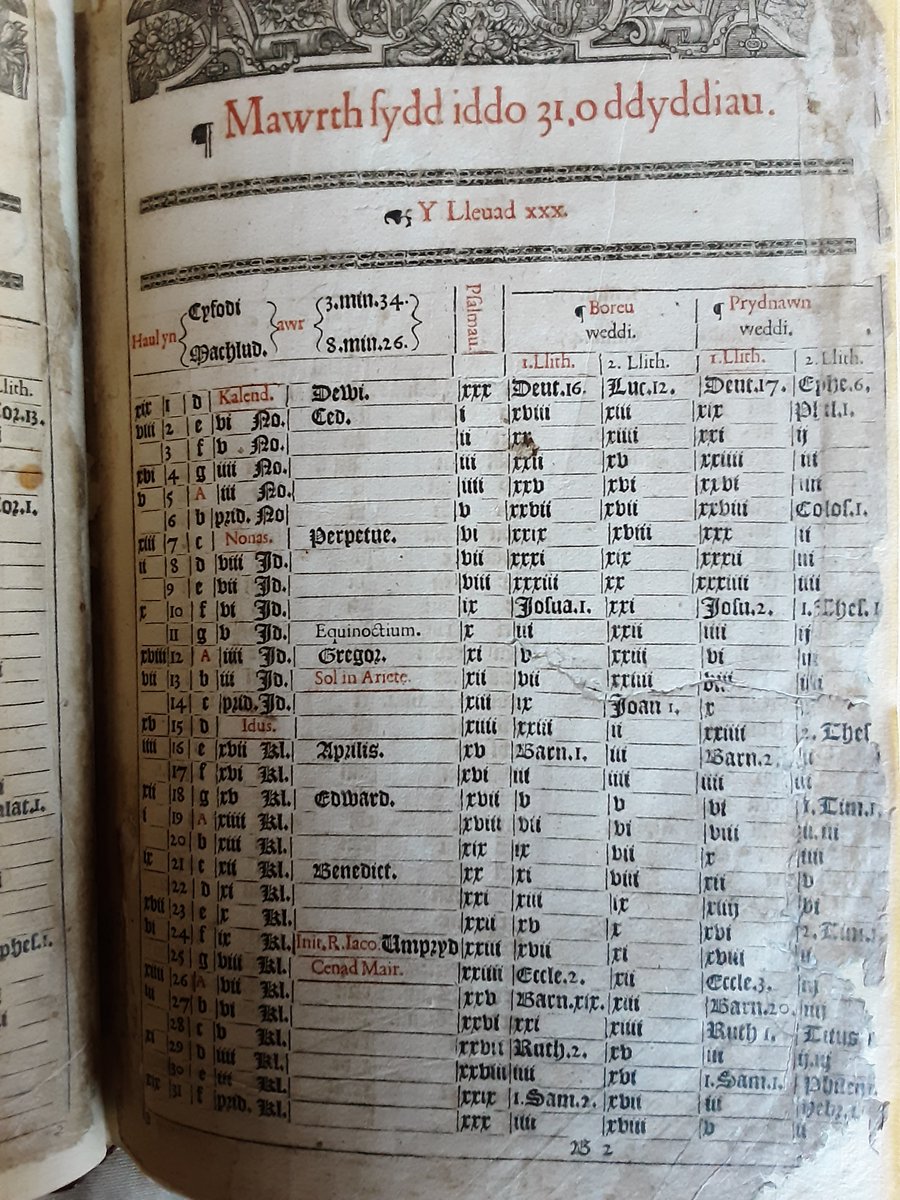 Llith.
Cor.13.
Cor.1.
alat.1.
phes.1.
¶ Mawrth ſydd iddo 31.o ddyddiau.
Y Lleuad xxx.
Haul yn Cyfodi Machlud. awr 3.min.34. 8.min.26. Pſalmau. ¶ Boreu weddi. ¶ Prydnawn weddi.
1.Llith. 2. Llith. 1.Llith. 2. Llith.
xix 1 d Kalend. Dewi. xxx Deut.16. Luc.12. Deut.17. Ephe.6.
viii 2 e vi No. Ced. i xviii xiii xix Phil.1.
3 f v No. ii xx xiiii xxi ij
xvi 4 g iiii No. iii xxii xv xxiiii iii
v 5 A iii No. iiii xxv xvi xxvi iiii
6 b prid. No v xxvii xvii xxviii Coloſ.1.
xiii 7 c Nonas. Perpetue. vi xxix xviii xxx ii
ii 8 d viii Jd. vii xxxi xix xxxii iii
9 e vii Jd. viii xxxiii xx xxxiiii iiii
x 10 f vi Jd. ix Joſua.1. xxi Joſu.2. 1.Theſ.1
11 g v Jd. Equinoctium. x iii xxii iiii ij
xviii 12 A iiii Jd. Gregor. xi v xxiii vi iij
vii 13 b iii Jd. Sol in Ariete. xii vii xxiiii viii
14 c prid.Jd. xiii ix Joan 1. x
xv 15 d Idus. xiiii xxiii ii xxiiii 2. Theſ
iiii 16 e xvii Kl. Aprilis. xv Barn.1. iii Barn.2. ii
17 f xvi Kl. xvi iii iiii iiii iii
xii 18 g xv Kl. Edward. xvii v v vi 1.Tim.1.
i 19 A xiiii Kl. xviii vii vi viii ii.iii
20 b xiii Kl. xix ix vii x iiii
ix 21 c xii Kl. Benedict. xx xi viii xii v
22 d xi Kl. xxi xiii ix xiiij vi
xvii 23 e x Kl. xxii xv x xvi 2.Tim.1.
vi 24 f ix Kl. Init.R.Iaco. Umpryd xxiii xvii xi xviii ii
25 g viii Kl. Cenad Mair. xxiiii Eccle.2. xii Eccle.3. iij
xiiii 26 A vii Kl. xxv Barn.xix. xiii Barn.20. iiij
iii 27 b vi Kl. xxvi xxi xiiii Ruth 1. Titus 1
28 c v Kl. xxvii Ruth.2. xv iii ij.iij
xi 29 d iiii Kl. xxviii iiii xvi 1.Sam.1. Philem.
30 e iii Kl. xxix 1.Sam.2. xvii iii Hebr.1
xix 31 f prid. Kl. xxx iiii xviii v ii
B 2